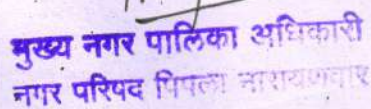 मुख्य नगर पालिका अधिकारी
नगर परिषद पिपला नारायणवार